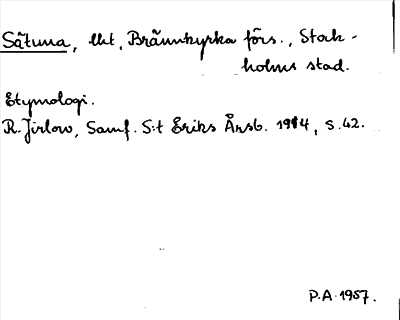 Sätuna, llht, Brännkyrka förs., Stock-
holms stad.
Etymologi.
R. Jirlow, Samf. S:t Eriks Årsb. 1914, s. 42.
P.A. 1957.